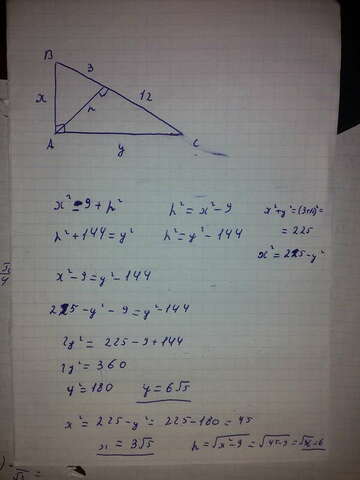 B
3
x
h
12
A
y
C
x² = 9 + h²
h² = x² - 9
x² + y² = (3+12)² =
h² + 144 = y²
h² = y² - 144
= 225
x² = 225 - y²
x² - 9 = y² - 144
225 - y² - 9 = y² - 144
2y² = 225 - 9 + 144
2y² = 360
y² = 180
y = 6√5
x² = 225 - y² = 225 - 180 = 45
x = 3√5
h = √x²-9 = √45-9 = √36 = 6